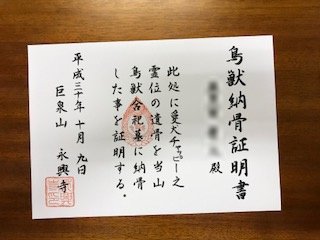 鳥獣納骨証明書
殿
此処に愛犬チャッピー之
霊位の遺骨を当山
鳥獣合祀墓に納骨
した事を証明する。
平成三十年十月九日
巨泉山 永興寺